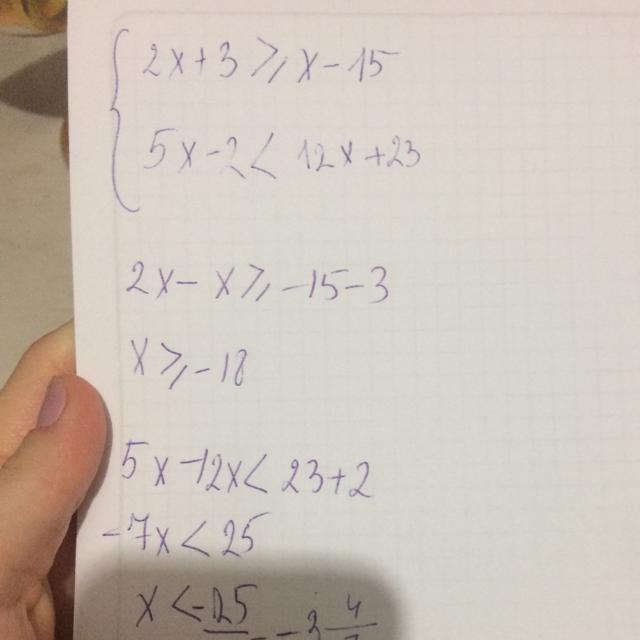 { 2x+3 ⩾ x-15
5x-2 < 12x+23
2x-x ⩾ -15-3
x ⩾ -18
5x-12x < 23+2
-7x < 25
x < -25 = -3 4